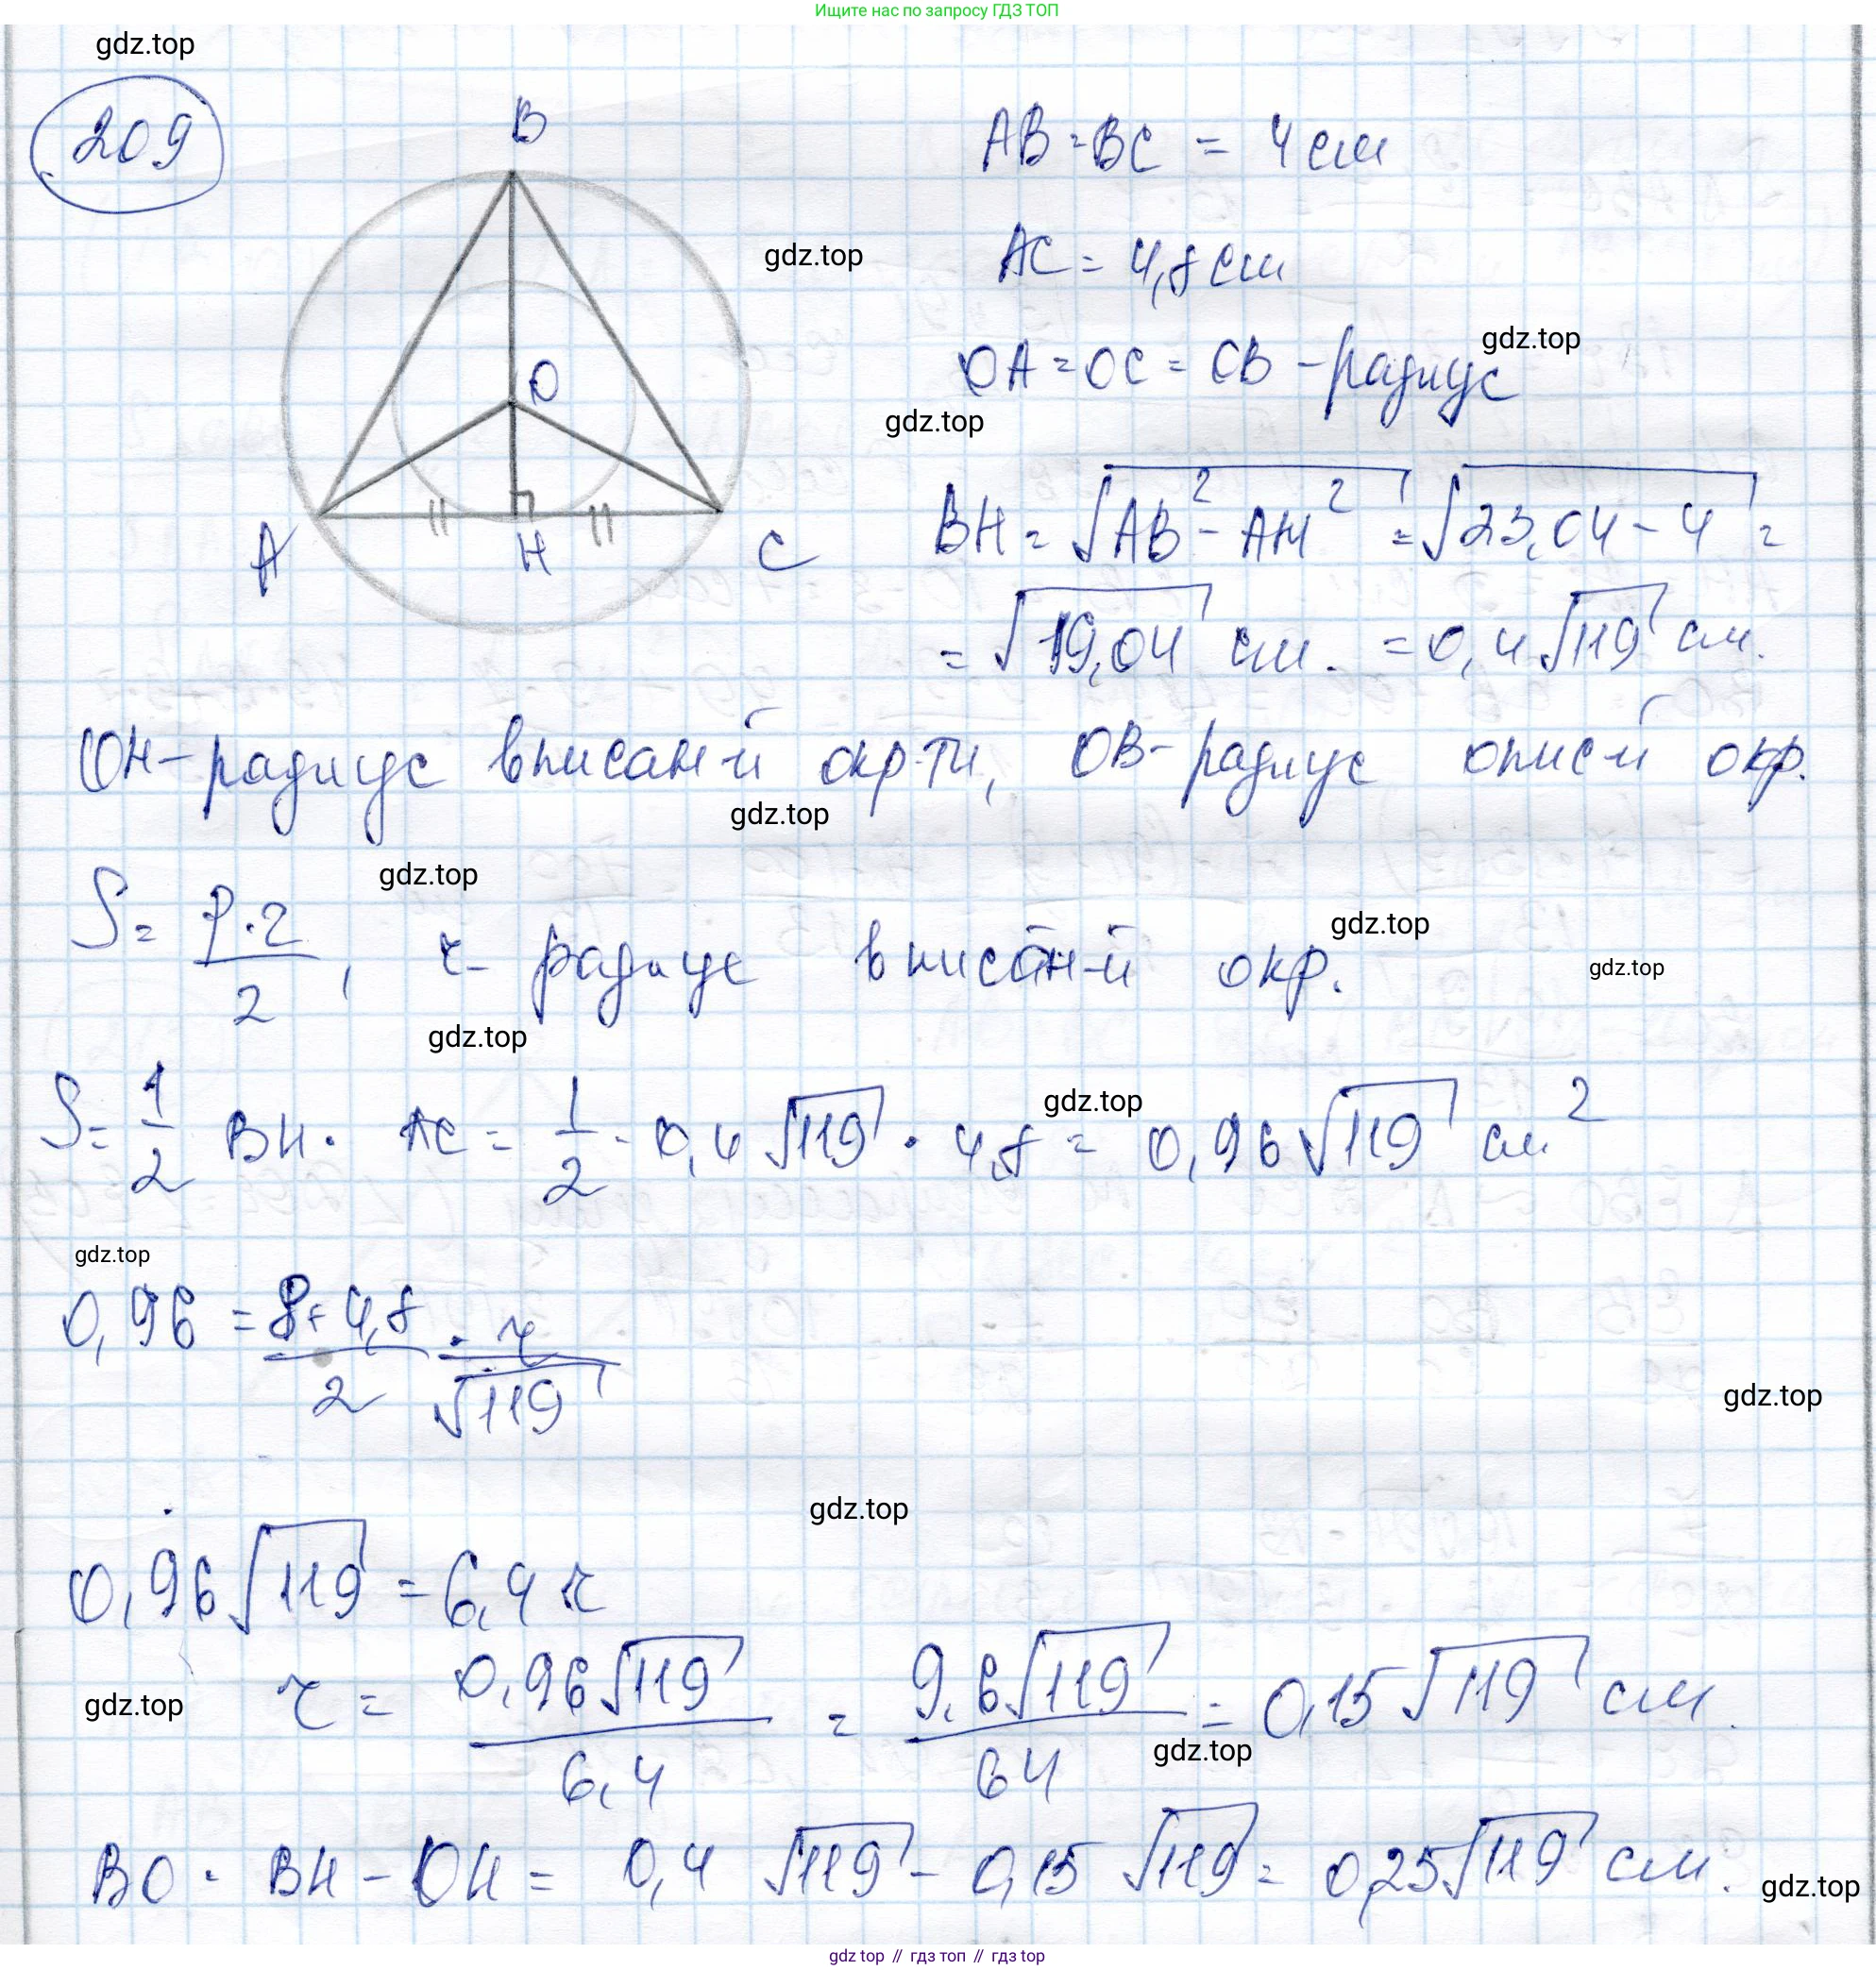 Ищите нас по запросу ГДЗ ТОП
gdz.top
209
B
AB = BC = 4 см
AC = 4,8 см
gdz.top
OA = OC = OB - радиус
gdz.top
O
gdz.top
BH = √AB² - AH² = √23,04 - 4 =
A H C
= √19,04 см. = 0,4√119 см.
OH - радиус вписан-й окр-ти, OB - радиус опис-й окр.
gdz.top
gdz.top
S = P·r / 2, r - радиус вписан-й окр.
gdz.top
gdz.top
gdz.top
S = 1/2 BH · AC = 1/2 · 0,4√119 · 4,8 = 0,96√119 см²
gdz.top
gdz.top
0,96 = 8+4,8 / 2 · r / √119
gdz.top
gdz.top
0,96√119 = 6,4 r
r = 0,96√119 / 6,4 = 9,6√119 / 64 = 0,15√119 см.
gdz.top
gdz.top
BO = BH - OH = 0,4 √119 - 0,15 √119 = 0,25√119 см.
gdz.top
gdz top // гдз топ // гдз top